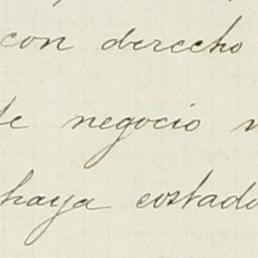 con derecho
negocio
haya costado